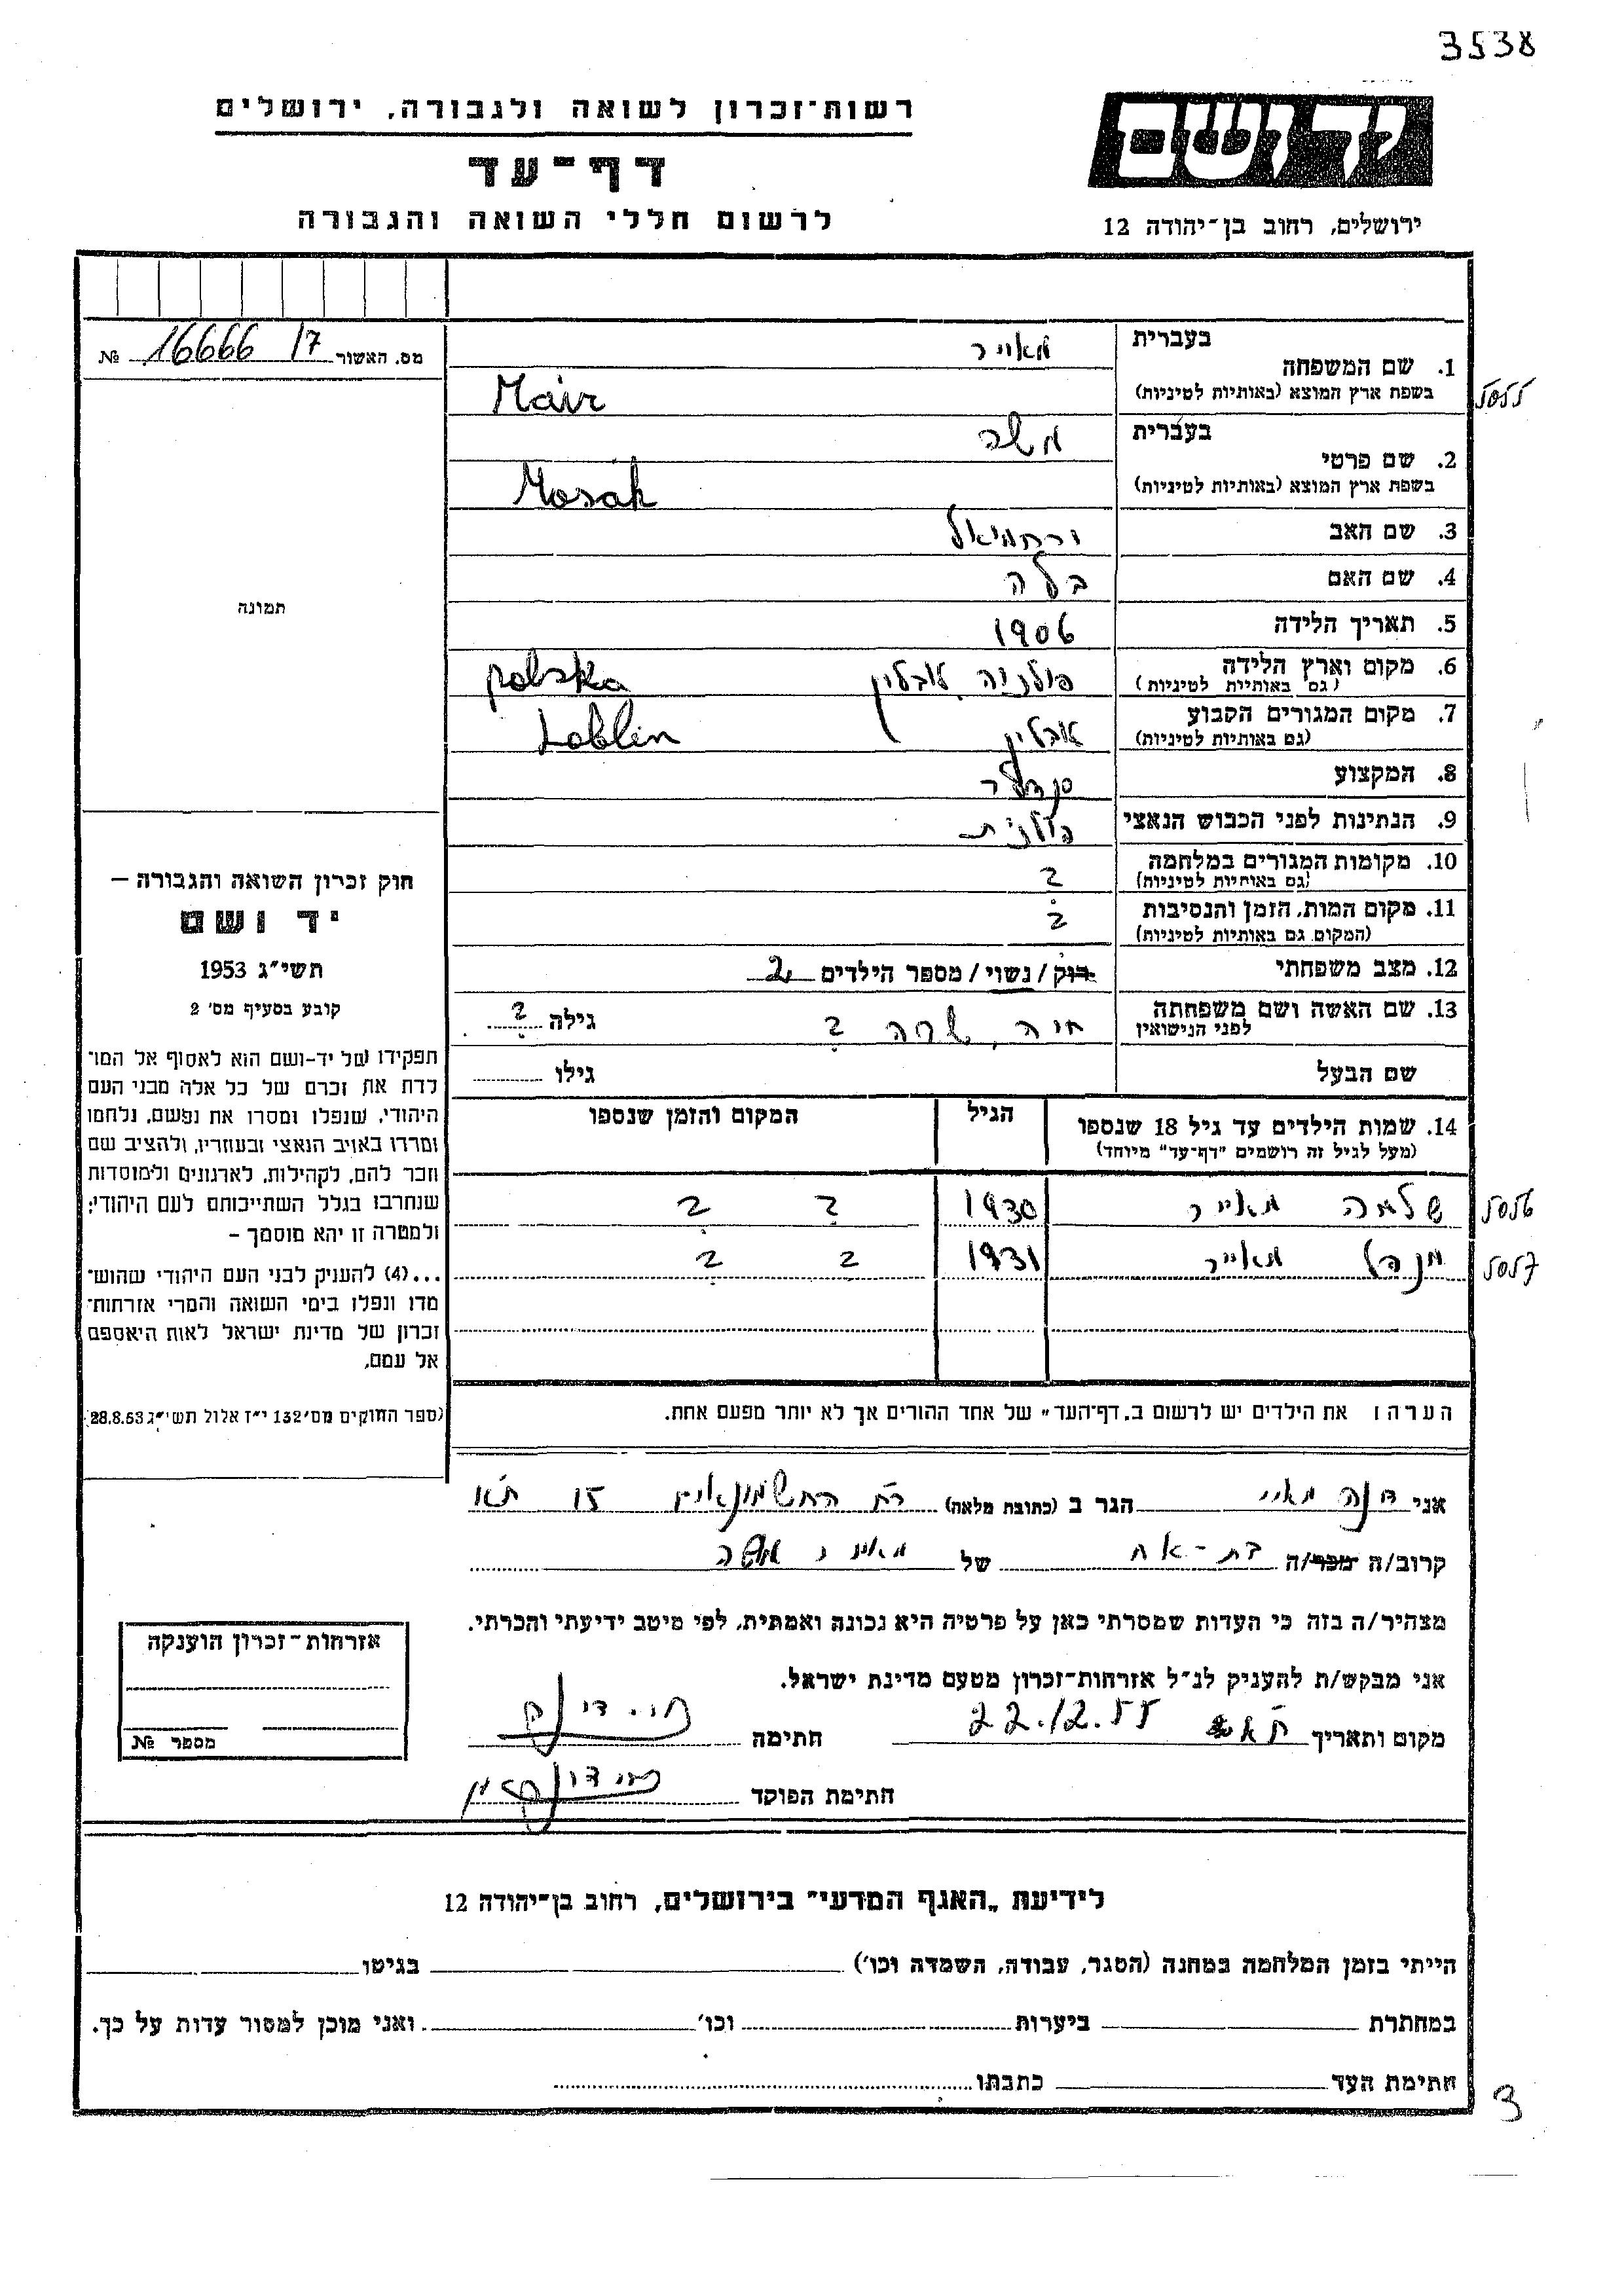 3538
רשות־זכרון לשואה ולגבורה, ירושלים
דף־עד
לרשום חללי השואה והגבורה
ידושם
ירושלים, רחוב בן־יהודה 12
מס. האשור 16666 17 №
תמונה
חוק זכרון השואה והגבורה —
יד ושם
תשי״ג 1953
קובע בסעיף מס׳ 2
תפקידו של יד-ושם הוא לאסוף אל המו־
לדת את זכרם של כל אלה מבני העם
היהודי, שנפלו ומסרו את נפשם, נלחמו
ומרדו באויב הנאצי ובעוזריו, ולהציב שם
וזכר להם, לקהילות, לארגונים ולמוסדות
שנחרבו בגלל השתייכותם לעם היהודי;
ולמטרה זו יהא מוסמך –
...(4) להעניק לבני העם היהודי שהוש־
מדו ונפלו בימי השואה והמרי אזרחות־
זכרון של מדינת ישראל לאות היאספם
אל עמם.
(ספר החוקים מס׳ 132 י״ז אלול תשי״ג 28.8.53)
1. שם המשפחה בעברית מאייר
בשפת ארץ המוצא (באותיות לטיניות) Mair
5055
2. שם פרטי בעברית משה
בשפת ארץ המוצא (באותיות לטיניות) Mosak
3. שם האב ירחמיאל
4. שם האם בלה
5. תאריך הלידה 1906
6. מקום וארץ הלידה (גם באותיות לטיניות) פולניה לובלין polska
7. מקום המגורים הקבוע (גם באותיות לטיניות) לובלין Loblin
8. המקצוע סנדלר
9. הנתינות לפני הכבוש הנאצי פולנית
10. מקומות המגורים במלחמה (גם באותיות לטיניות) ?
11. מקום המות, הזמן והנסיבות (המקום גם באותיות לטיניות) ?
12. מצב משפחתי רוק/נשוי/מספר הילדים 2
13. שם האשה ושם משפחתה לפני הנישואין חיה, שרה ? גילה ?
שם הבעל גילו
14. שמות הילדים עד גיל 18 שנספו הגיל המקום והזמן שנספו
(מעל לגיל זה רושמים "דף־עד" מיוחד)
שלמה מאייר 1930 ? ? 5056
מנדל מאייר 1931 ? ? 5057
הערה: את הילדים יש לרשום ב„דף־העד״ של אחד ההורים אך לא יותר מפעם אחת.
אני מאיר הגר ב (כתובת מלאה) רח החשמונאים 15 תא
קרוב/ה מכר/ה בת-אח של מאיר משה
מצהיר/ה בזה כי העדות שמסרתי כאן על פרטיה היא נכונה ואמתית, לפי מיטב ידיעתי והכרתי.
אני מבקש/ת להעניק לנ״ל אזרחות־זכרון מטעם מדינת ישראל.
מקום ותאריך ת״א 22.12.55 חתימה
חתימת הפוקד
אזרחות־זכרון הוענקה
מספר №
לידיעת „האגף המדעי״ בירושלים, רחוב בן־יהודה 12
הייתי בזמן המלחמה במחנה (הסגר, עבודה, השמדה וכו׳) בגיטו
במחתרת ביערות וכו׳ ואני מוכן למסור עדות על כך.
חתימת העד כתבתו
3